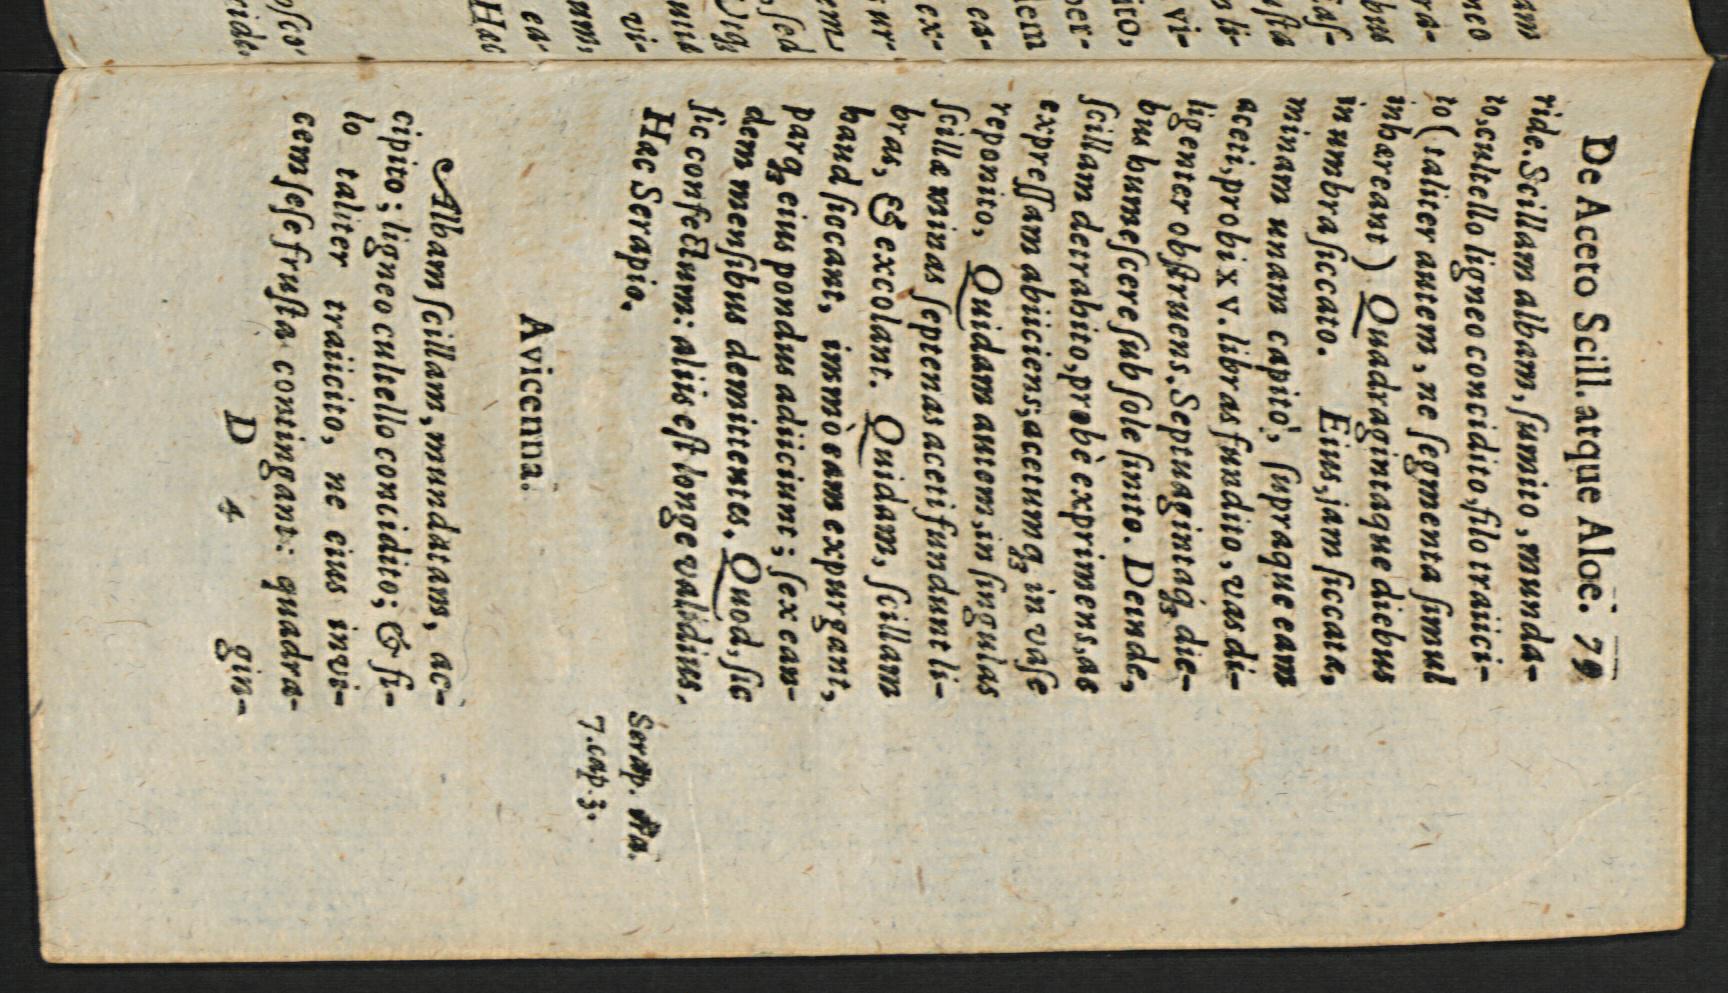 De Aceto Scill. atque Aloë. 79
ride. Scillam albam, ſumito, munda-
to, cultello ligneo concidito, filo traiici-
to (taliter autem, ne ſegmenta ſimul
inhæreant) Quadragintaque diebus
in umbra ſiccato. Eius, jam ſiccatæ,
minam unam capito, ſupraque eam
aceti, probi xv. libras fundito, vas di-
ligenter obſtruens. Septuagintaq́; die-
bus humeſcere ſub ſole ſinito. Deinde,
ſcillam detrahito, probè exprimens, ac
expreſſam abiiciens; acetumq́; in vaſe
reponito, Quidam autem, in ſingulas
ſcillæ minas ſeptenas aceti fundunt li-
bras, & excolant. Quidam, ſcillam
haud ſiccant, immò eam expurgant,
parq́; eius pondus adiiciunt; ſex ean-
dem menſibus demittentes. Quod, ſic
ſic confectum: aliis eſt longe validius.
Hæc Serapio.
Serap.
7. cap. 3.
Avicenna.
Albam ſcillam, mundatam, ac-
cipito; ligneo cultello concidito; & fi-
lo taliter traiicito, ne eius invi-
cem ſeſe fruſta contingant: quadra-
D 4
gin-
am
neo
ra-
bus
uſta
li-
vi-
ito,
per-
dem
ea-
ex-
em
ſed
vi-
ea-
Hæc
ride.